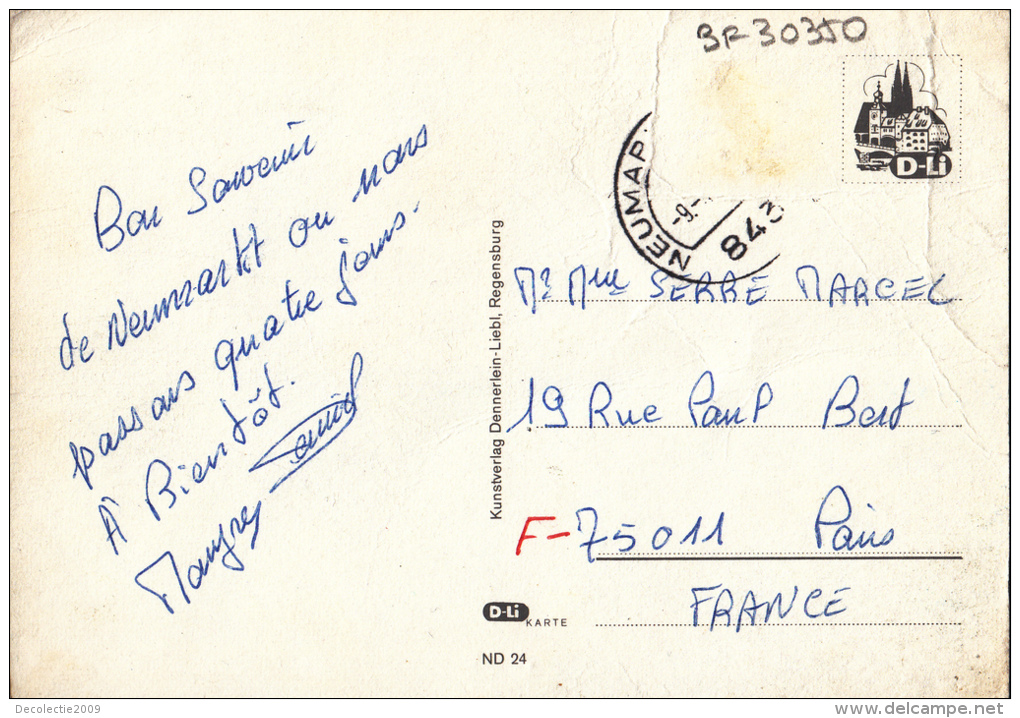 BR 30350
D-Li
NEUMAR
-9.-
843
Bon Souvenir
de Neumarkt ou nous
passons quatre jours.
À Bientôt.
Kunstverlag Dennerlein-Liebl, Regensburg
Mr Mme SERRE MARCEL
19 Rue Paul Bert
F-75011 Paris
FRANCE
D-Li KARTE
ND 24
Decolectie2009
delcampe.net